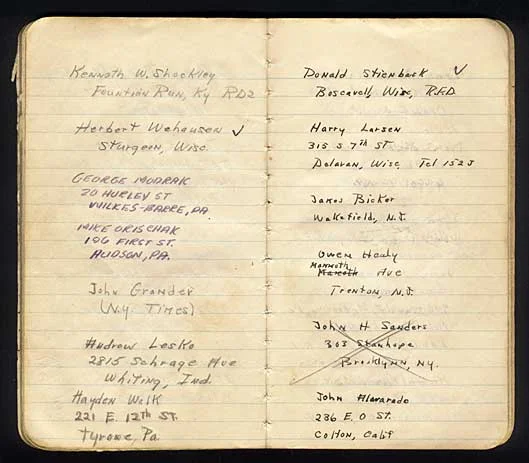 Kenneth W. Shockley
Fountian Run, Ky RD2
Herbert Wehausen ✓
Sturgeon, Wisc.
GEORGE MUDRAK
20 HURLEY ST
WILKES-BARRE, PA
MIKE ORISCHAK
106 FIRST ST.
HUDSON, PA.
John Grander
(N.Y. Times)
Andrew Lesko
2815 Schrage Ave
Whiting, Ind.
Hayden Walk
221 E. 12th ST.
Tyrone, Pa.
Donald Stienback ✓
Boscavell, Wisc, R.F.D.
Harry Larsen
315 S 7th ST.
Delavan, Wisc. Tel 152J
James Bicker
Wakefield, N.J.
Owen Healy
Monmoth
Ave
Trenton, N.J.
John H Sanders
303 Stanhope
Brooklynn, NY.
John Alvarado
236 E. O St.
Colton, Calif